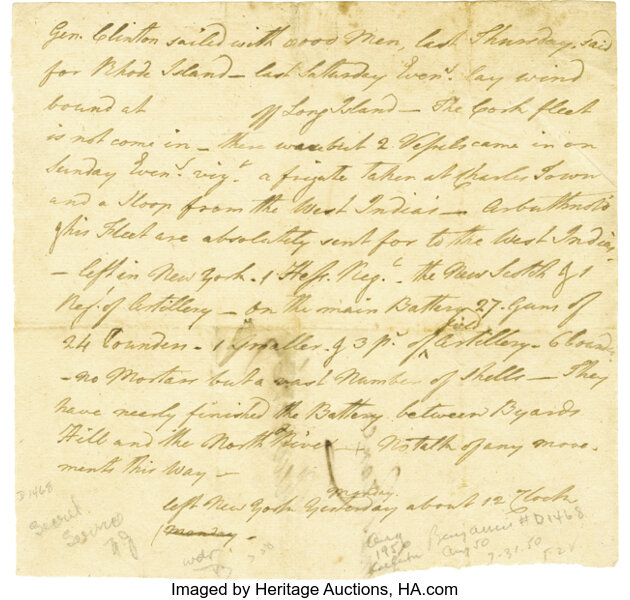 Gen. Clinton sailed with 8000 Men, last Thursday. Said
for Rhode Island – last Saturday Even.g lay wind
bound at off Long Island – The Cork fleet
is not come in – there was but 2 Vessels came in on
Sunday Even.g viz.t a frigate taken at Charles Town
and a Sloop from the West Indias – Arbuthnot &
his Fleet are absolutely sent for to the West Indias
– left in New York. 1 Hess. Reg.t the New Scotch & 1
Reg. of Artillery – on the main Battery 27. Guns of
24 Pounders – 1 smaller & 3 p.s of field Artillery – 6 Pounders
– no Mortars but a vast Number of Shells – They
have nearly finished the Battery between Byards
Hill and the North River – No talk of any move-
ments this Way –
left New York Yesterday monday. about 12 Clock
(Monday) –
D1468
Secret
Service
NJ
Benjamin # D1468
1950
Aug 50
7-31-50
Imaged by Heritage Auctions, HA.com